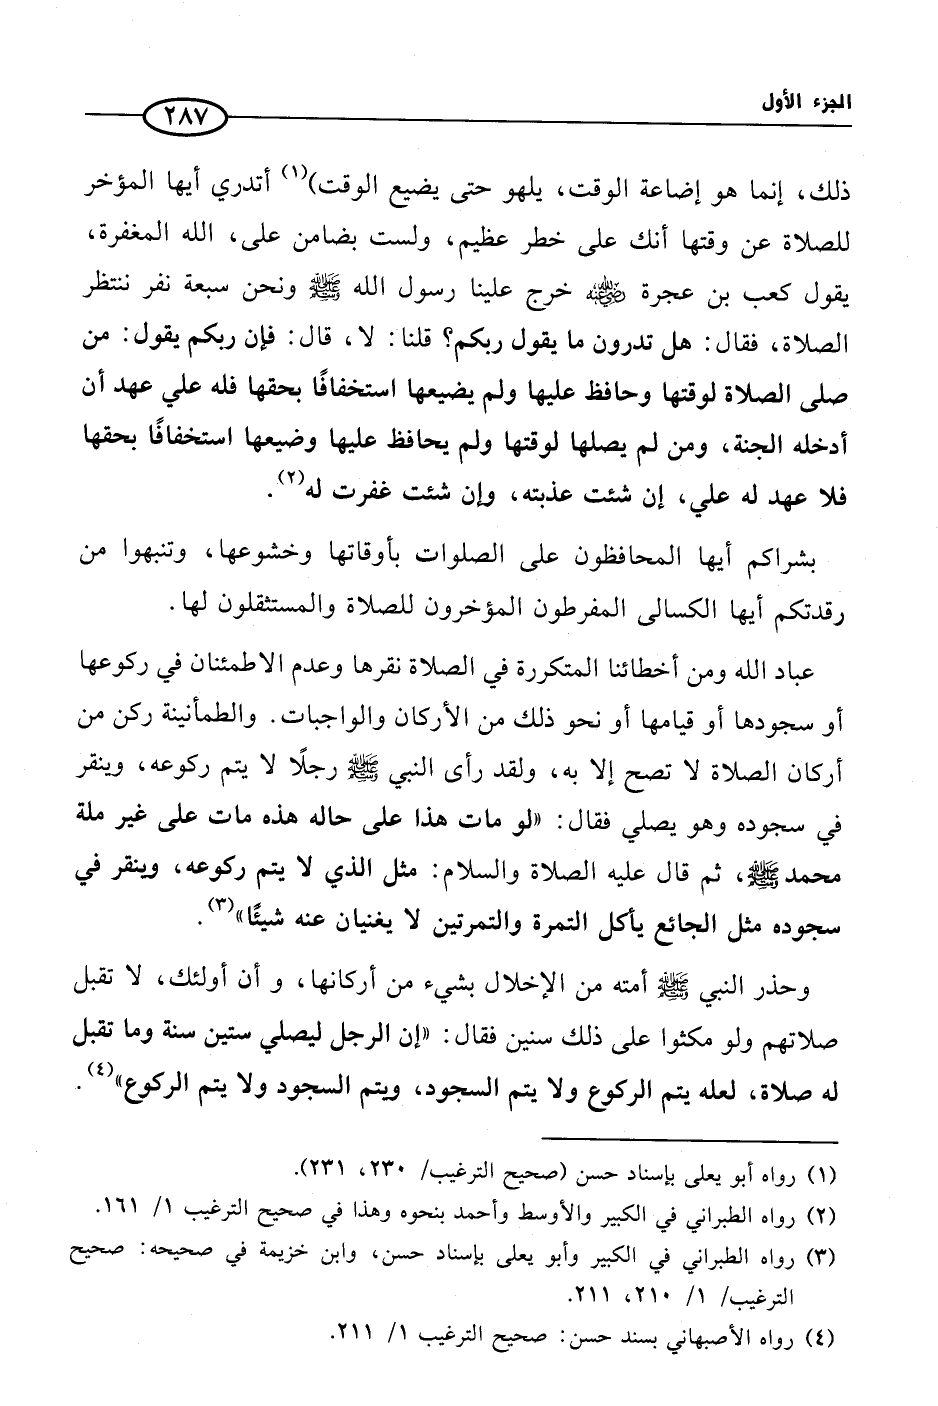 الجزء الأول
٢٨٧
ذلك، إنما هو إضاعة الوقت، يلهو حتى يضيع الوقت)(١) أتدري أيها المؤخر
للصلاة عن وقتها أنك على خطر عظيم، ولست بضامن على، الله المغفرة،
يقول كعب بن عجرة رضي الله عنه خرج علينا رسول الله ﷺ ونحن سبعة نفر ننتظر
الصلاة، فقال: هل تدرون ما يقول ربكم؟ قلنا: لا، قال: فإن ربكم يقول: من
صلى الصلاة لوقتها وحافظ عليها ولم يضيعها استخفافًا بحقها فله علي عهد أن
أدخله الجنة، ومن لم يصلها لوقتها ولم يحافظ عليها وضيعها استخفافًا بحقها
فلا عهد له علي، إن شئت عذبته، وإن شئت غفرت له(٢).
بشراكم أيها المحافظون على الصلوات بأوقاتها وخشوعها، وتنبهوا من
رقدتكم أيها الكسالى المفرطون المؤخرون للصلاة والمستثقلون لها.
عباد الله ومن أخطائنا المتكررة في الصلاة نقرها وعدم الاطمئنان في ركوعها
أو سجودها أو قيامها أو نحو ذلك من الأركان والواجبات. والطمأنينة ركن من
أركان الصلاة لا تصح إلا به، ولقد رأى النبي ﷺ رجلًا لا يتم ركوعه، وينقر
في سجوده وهو يصلي فقال: «لو مات هذا على حاله هذه مات على غير ملة
محمد ﷺ، ثم قال عليه الصلاة والسلام: مثل الذي لا يتم ركوعه، وينقر في
سجوده مثل الجائع يأكل التمرة والتمرتين لا يغنيان عنه شيئًا»(٣).
وحذر النبي ﷺ أمته من الإخلال بشيء من أركانها، و أن أولئك، لا تقبل
صلاتهم ولو مكثوا على ذلك سنين فقال: «إن الرجل ليصلي ستين سنة وما تقبل
له صلاة، لعله يتم الركوع ولا يتم السجود، ويتم السجود ولا يتم الركوع»(٤).
(١) رواه أبو يعلى بإسناد حسن (صحيح الترغيب/ ٢٣٠، ٢٣١).
(٢) رواه الطبراني في الكبير والأوسط وأحمد بنحوه وهذا في صحيح الترغيب ١/ ١٦١.
(٣) رواه الطبراني في الكبير وأبو يعلى بإسناد حسن، وابن خزيمة في صحيحه: صحيح
الترغيب/ ١/ ٢١٠، ٢١١.
(٤) رواه الأصبهاني بسند حسن: صحيح الترغيب ١/ ٢١١.